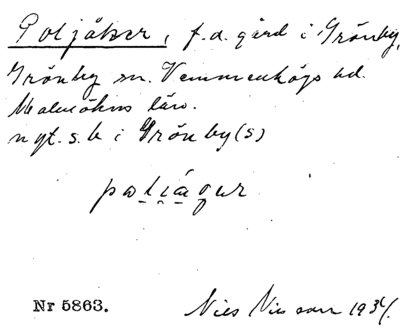 Poljåker, f.d. gård i Grönby,
Grönby sn. Vemmenhögs hd.
Malmöhus län.
ngt. s.b i Grönby (s)
Nr 5863. Nils Nilsson